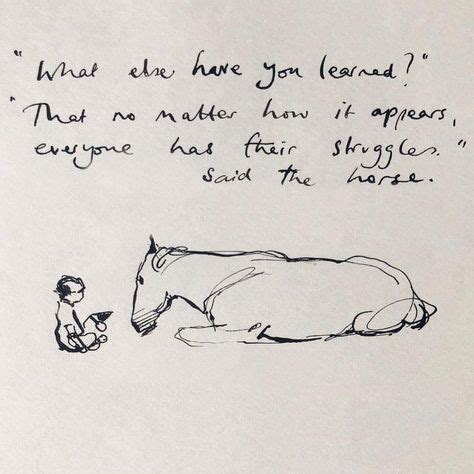 "What else have you learned?"
"That no matter how it appears,
everyone has their struggles."
said the horse.